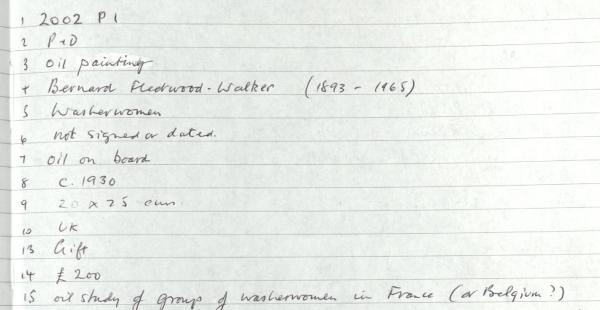 1 2002 P1
2 P+D
3 oil painting
4 Bernard Fleetwood-Walker (1893 - 1965)
5 Washerwomen
6 not signed or dated.
7 oil on board
8 c. 1930
9 20 x 25 cm
10 UK
13 Gift
14 £200
15 oil study of group of washerwomen in France (or Belgium?)